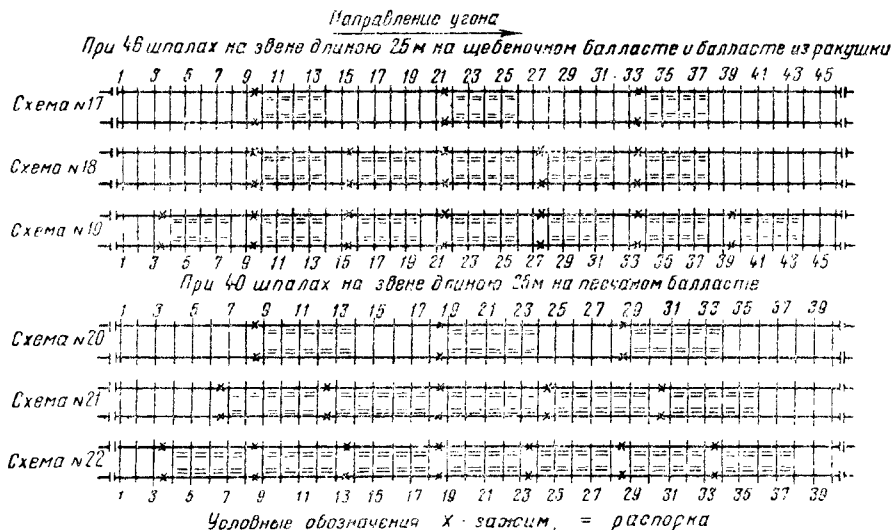 Направление угона
При 46 шпалах на звене длиною 25 м на щебеночном балласте и балласте из ракушки
1 3 5 7 9 11 13 15 17 19 21 23 25 27 29 31 33 35 37 39 41 43 45
Схема №17
Схема №18
Схема №19
1 3 5 7 9 11 13 15 17 19 21 23 25 27 29 31 33 35 37 39 41 43 45
При 40 шпалах на звене длиною 25 м на песчаном балласте
1 3 5 7 9 11 13 15 17 19 21 23 25 27 29 31 33 35 37 39
Схема №20
Схема №21
Схема №22
1 3 5 7 9 11 13 15 17 19 21 23 25 27 29 31 33 35 37 39
Условные обозначения x - зажим, = распорка